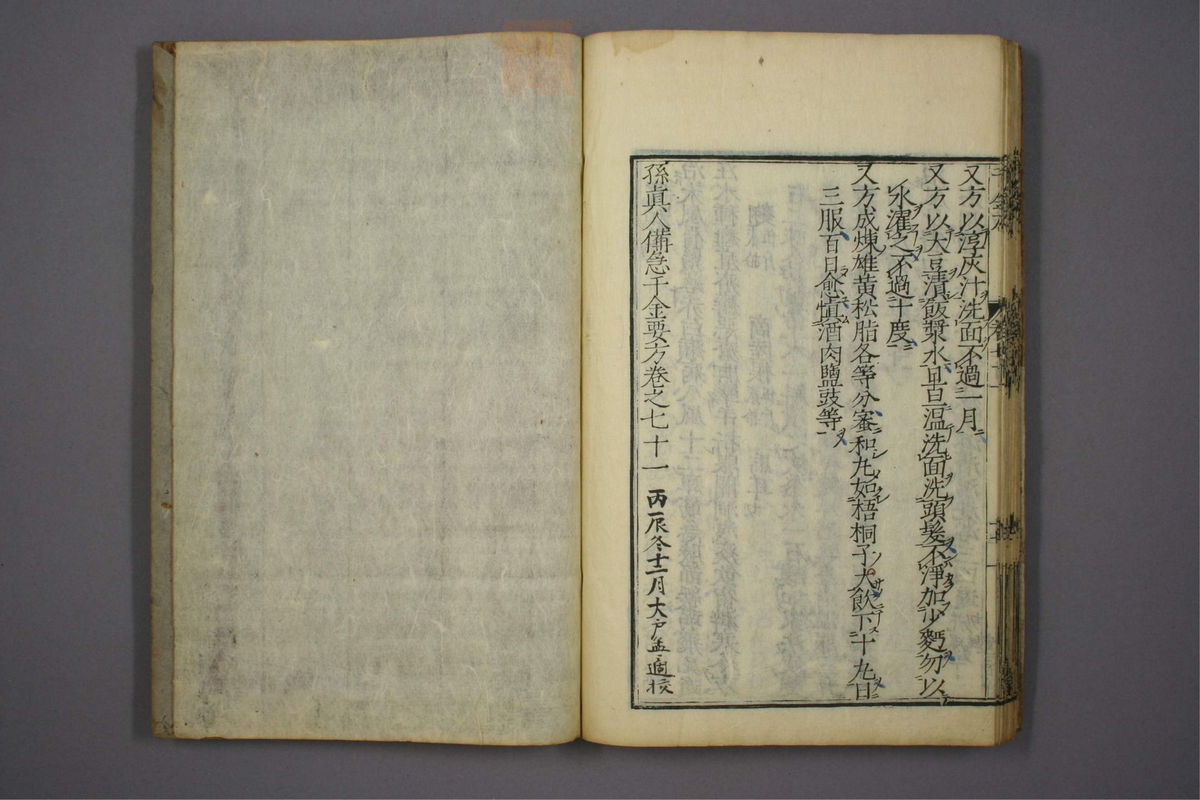 又方以淳灰汁洗面不過一月
又方以大豆漬飯漿水旦旦温洗面洗頭髮不淨加少麪勿以
水濯之不過十度
又方成煉雄黄松脂各等分蜜和丸如梧桐子大飲下十丸日
三服百日愈慎酒肉鹽豉等
孫真人備急千金要方巻之七十一
丙辰冬十二月大戸孟適校